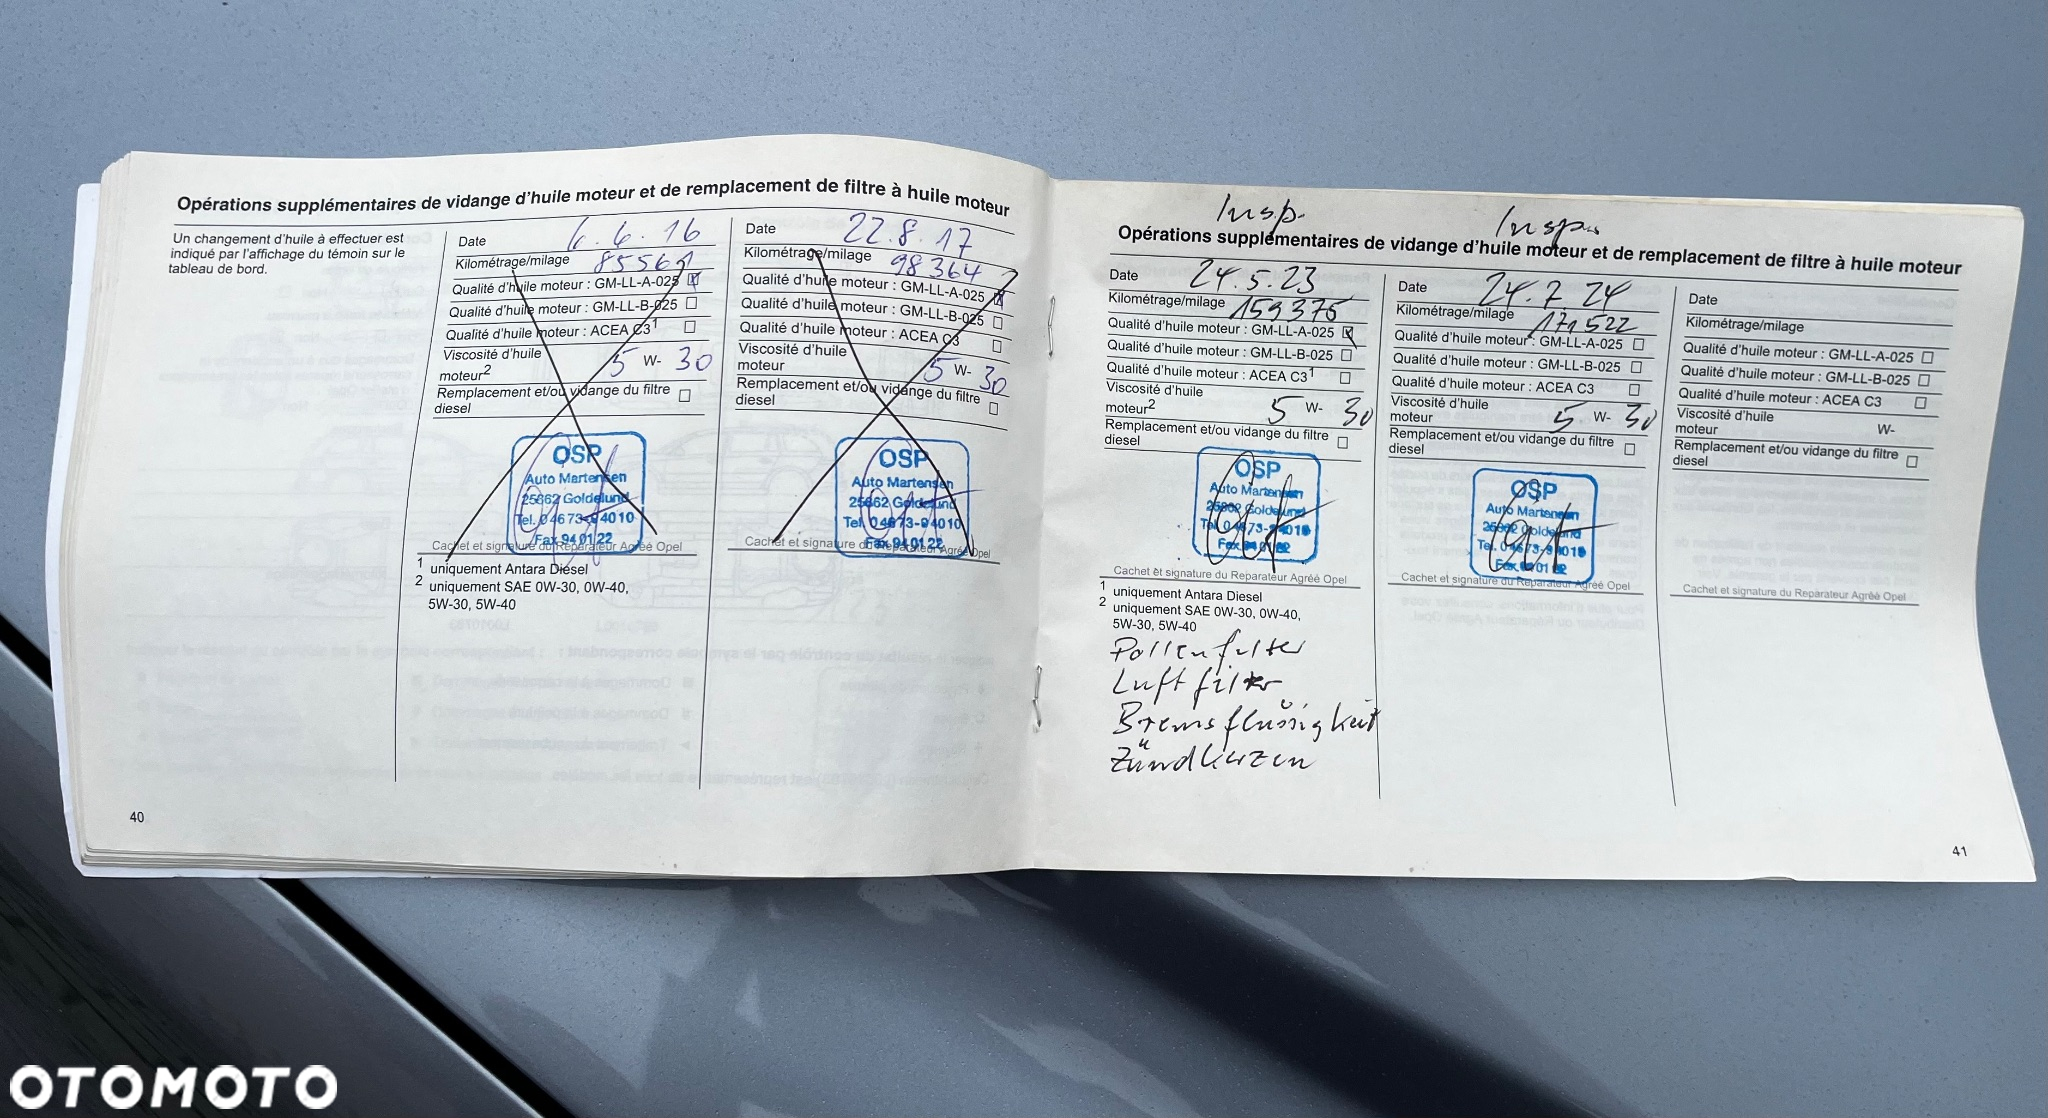 Opérations supplémentaires de vidange d'huile moteur et de remplacement de filtre à huile moteur
Un changement d'huile à effectuer est
indiqué par l'affichage du témoin sur le
tableau de bord.
Date 6.4.16
Kilométrage/milage 85561
Qualité d'huile moteur : GM-LL-A-025
Qualité d'huile moteur : GM-LL-B-025
Qualité d'huile moteur : ACEA C3¹
Viscosité d'huile
moteur² 5 W- 30
Remplacement et/ou vidange du filtre
diesel
OSP
Auto Martensen
25862 Goldelund
Tel. 04673-94010
Fax 940122
Cachet et signature du Reparateur Agréé Opel
1 uniquement Antara Diesel
2 uniquement SAE 0W-30, 0W-40,
5W-30, 5W-40
Date 22.8.17
Kilométrage/milage 98364
Qualité d'huile moteur : GM-LL-A-025
Qualité d'huile moteur : GM-LL-B-025
Qualité d'huile moteur : ACEA C3
Viscosité d'huile
moteur 5 W- 30
Remplacement et/ou vidange du filtre
diesel
OSP
Auto Martensen
25862 Goldelund
Tel. 04673-94010
Fax 940122
Cachet et signature du Reparateur Agréé Opel
40
Insp. Insp.
Opérations supplémentaires de vidange d'huile moteur et de remplacement de filtre à huile moteur
Date 24.5.23
Kilométrage/milage 159375
Qualité d'huile moteur : GM-LL-A-025
Qualité d'huile moteur : GM-LL-B-025
Qualité d'huile moteur : ACEA C3¹
Viscosité d'huile
moteur² 5 W- 30
Remplacement et/ou vidange du filtre
diesel
OSP
Auto Martensen
25862 Goldelund
Tel. 04673-94010
Fax 940122
Cachet et signature du Reparateur Agréé Opel
1 uniquement Antara Diesel
2 uniquement SAE 0W-30, 0W-40,
5W-30, 5W-40
Pollenfilter
Luftfilter
Bremsflüssigkeit
Zündkerzen
Date 24.7.24
Kilométrage/milage 171522
Qualité d'huile moteur : GM-LL-A-025
Qualité d'huile moteur : GM-LL-B-025
Qualité d'huile moteur : ACEA C3
Viscosité d'huile
moteur 5 W- 30
Remplacement et/ou vidange du filtre
diesel
OSP
Auto Martensen
25862 Goldelund
Tel. 04673-94010
Fax 940122
Cachet et signature du Reparateur Agréé Opel
Date
Kilométrage/milage
Qualité d'huile moteur : GM-LL-A-025
Qualité d'huile moteur : GM-LL-B-025
Qualité d'huile moteur : ACEA C3
Viscosité d'huile
moteur W-
Remplacement et/ou vidange du filtre
diesel
Cachet et signature du Reparateur Agréé Opel
41
OTOMOTO